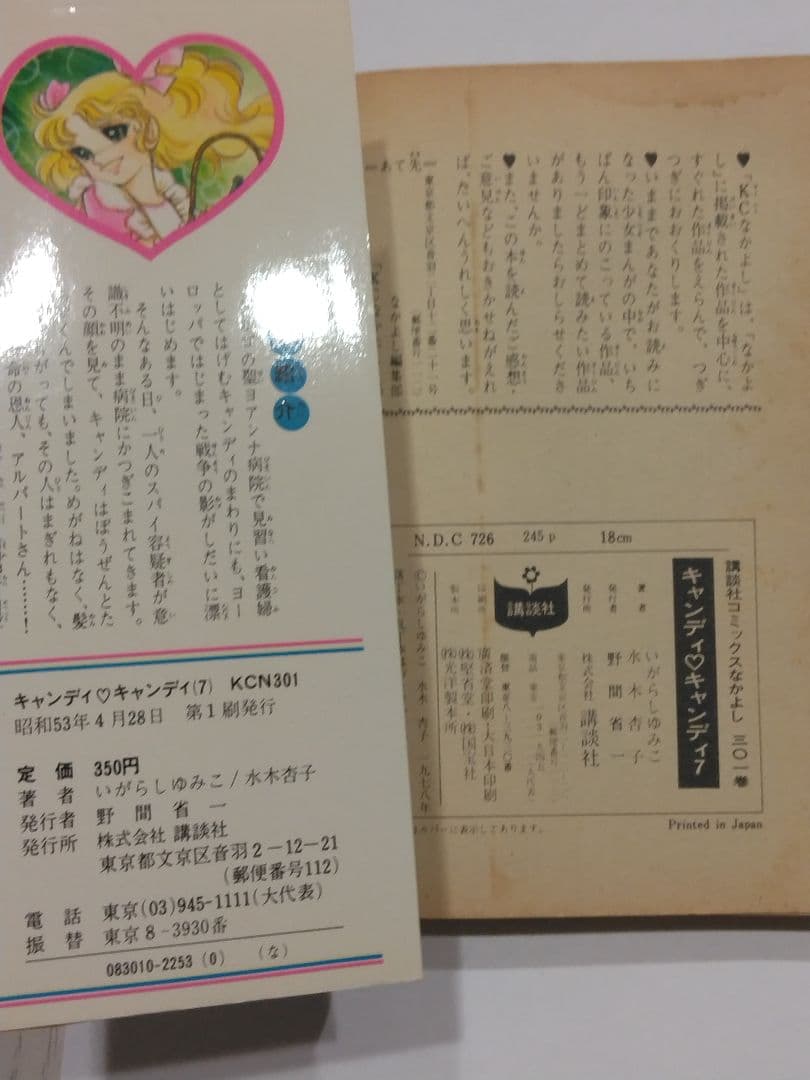 紹介
の聖ヨアンナ病院で見習い看護婦
としてはげむキャンディのまわりにも、ヨー
ロッパではじまった戦争の影がしだいに漂
いはじめます。
そんなある日、一人のスパイ容疑者が意
識不明のまま病院にかつぎこまれてきます。
その顔を見て、キャンディはぼうぜんとた
くんでしまいました。めがねはなく、髪
がっても、その人はまぎれもなく、
命の恩人、アルバートさん………!
キャンディ♡キャンディ(7) KCN301
昭和53年4月28日 第1刷発行
定価 350円
著者 いがらしゆみこ/水木杏子
発行者 野間省一
発行所 株式会社 講談社
東京都文京区音羽2-12-21
(郵便番号112)
電話 東京(03)945-1111(大代表)
振替 東京8-3930番
083010-2253 (0) (な)
♥「KCなかよし」は、「なかよ
し」に掲載された作品を中心に、
すぐれた作品をえらんで、つぎ
つぎにおおくりします。
♥いままであなたがお読みに
なった少女まんがの中で、いち
ばん印象にのこっている作品、
もう一どまとめて読みたい作品
がありましたらおしらせくださ
いませんか。
♥また、この本を読んだご感想・
ご意見などもおきかせねがえれ
ば、たいへんうれしく思います。
―あて先―
東京都文京区音羽二丁目十二番二十一号
なかよし編集部
N.D.C 726 245p 18cm
講談社コミックスなかよし 三〇一巻
キャンディ♡キャンディ7
著者 いがらしゆみこ
水木杏子
発行者 野間省一
発行所 株式会社 講談社
講談社
振替 東京八-三九三〇番
印刷所 廣済堂印刷・大日本印刷
㈱堅省堂・㈱国宝社
製本所 ㈱光洋製本所
©いがらしゆみこ 水木杏子 一九七八年
カバーに表示してあります。
Printed in Japan